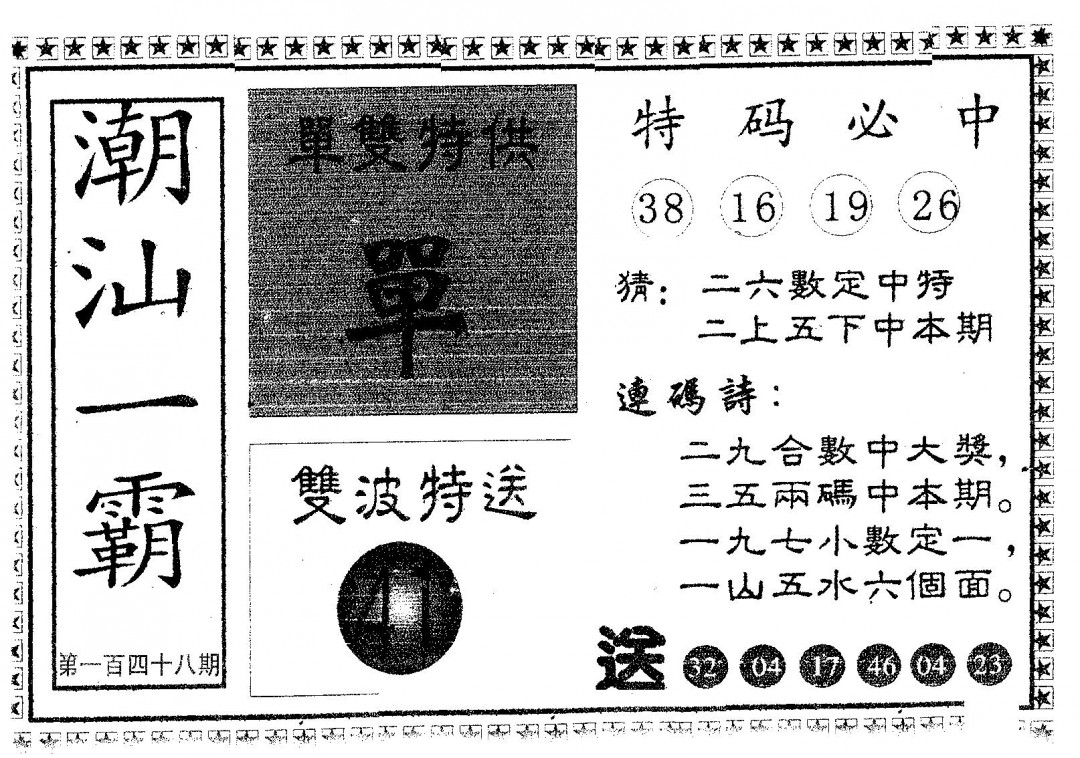 潮汕一霸
第一百四十八期
單雙特供
單
雙波特送
41
特码必中
38 16 19 26
猜：二六數定中特
二上五下中本期
連碼詩：
二九合數中大獎，
三五兩碼中本期。
一九七小數定一，
一山五水六個面。
送 32 04 17 46 04 23